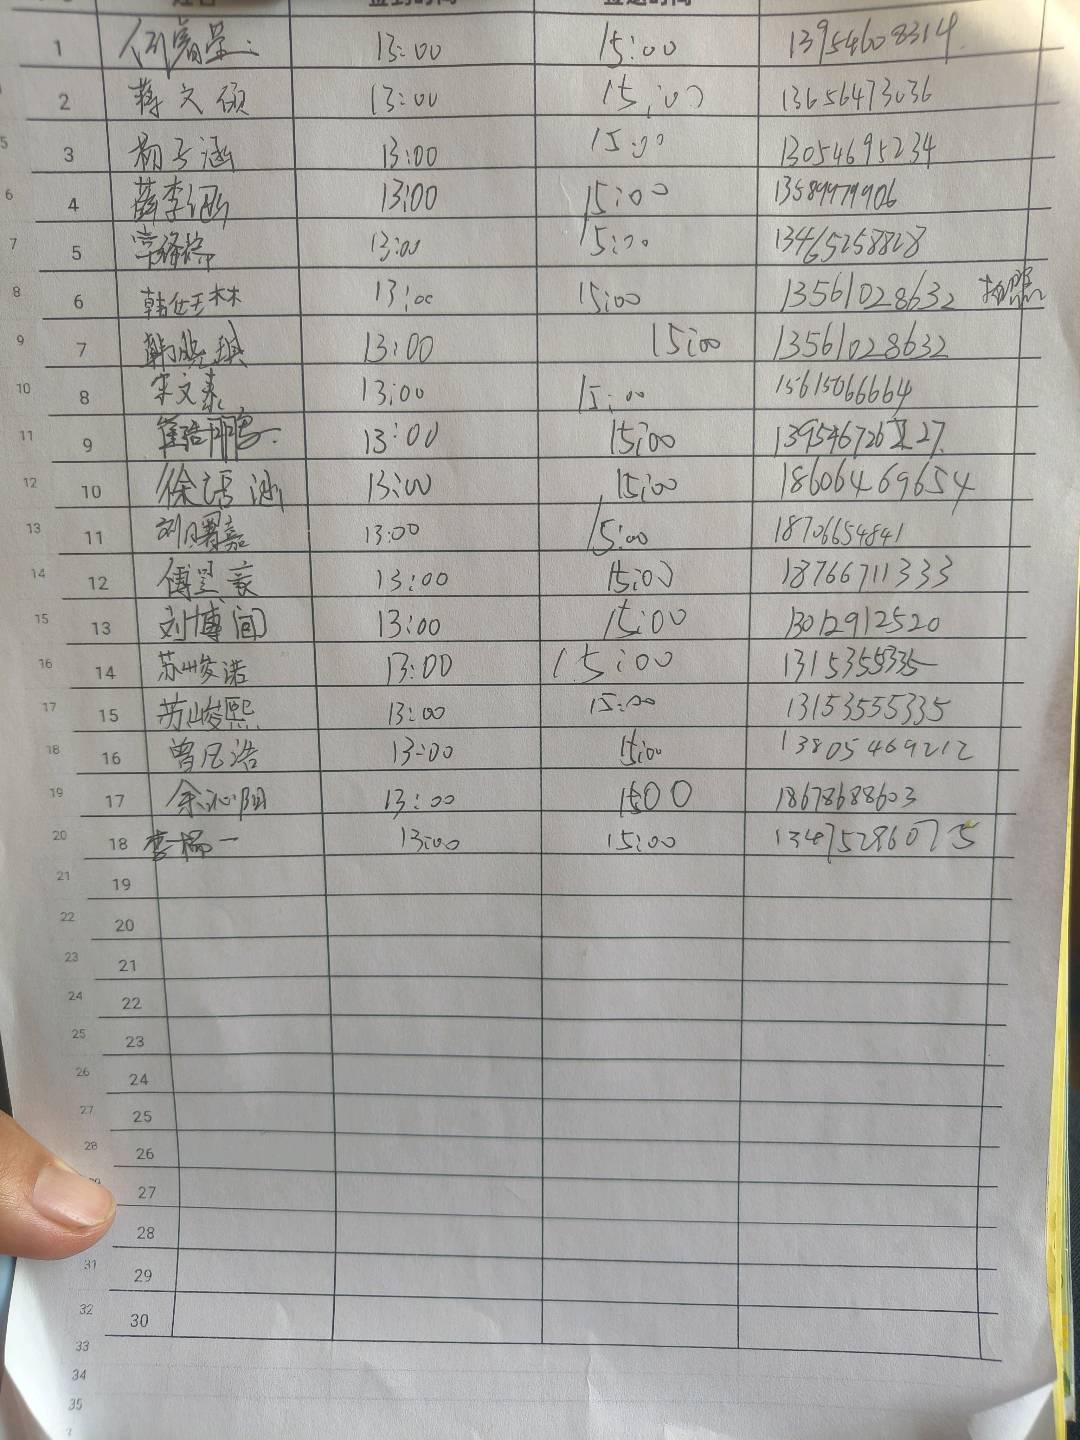 姓名 签到时间 签退时间
1 13:00 15:00 13954608314
2 蒋文硕 13:00 15:00 13656473036
5 3 杨子涵 13:00 15:00 13054695234
6 4 薛李涵 13:00 15:00 13589979906
7 5 13:00 15:00 13465258828
8 6 韩仕林 13:00 15:00 13561028632 拍照
9 7 韩晓琪 13:00 15:00 13561028632
10 8 宋文泰 13:00 15:00 15615066664
11 9 13:00 15:00
12 10 徐语涵 13:00 15:00 18606469654
13 11 刘曙嘉 13:00 15:00 18706654841
14 12 傅昱豪 13:00 15:00 18766711333
15 13 刘博闻 13:00 15:00 13012912520
16 14 苏峻诺 13:00 15:00 1315355335
17 15 苏峻熙 13:00 15:00 13153555335
18 16 曾凡浩 13:00 15:00 13805469212
19 17 余沁阳 13:00 1500 18678688603
20 18 13:00 15:00 13475286075
21 19
22 20
23 21
24 22
25 23
26 24
27 25
28 26
27
28
31 29
32 30
33
34
35